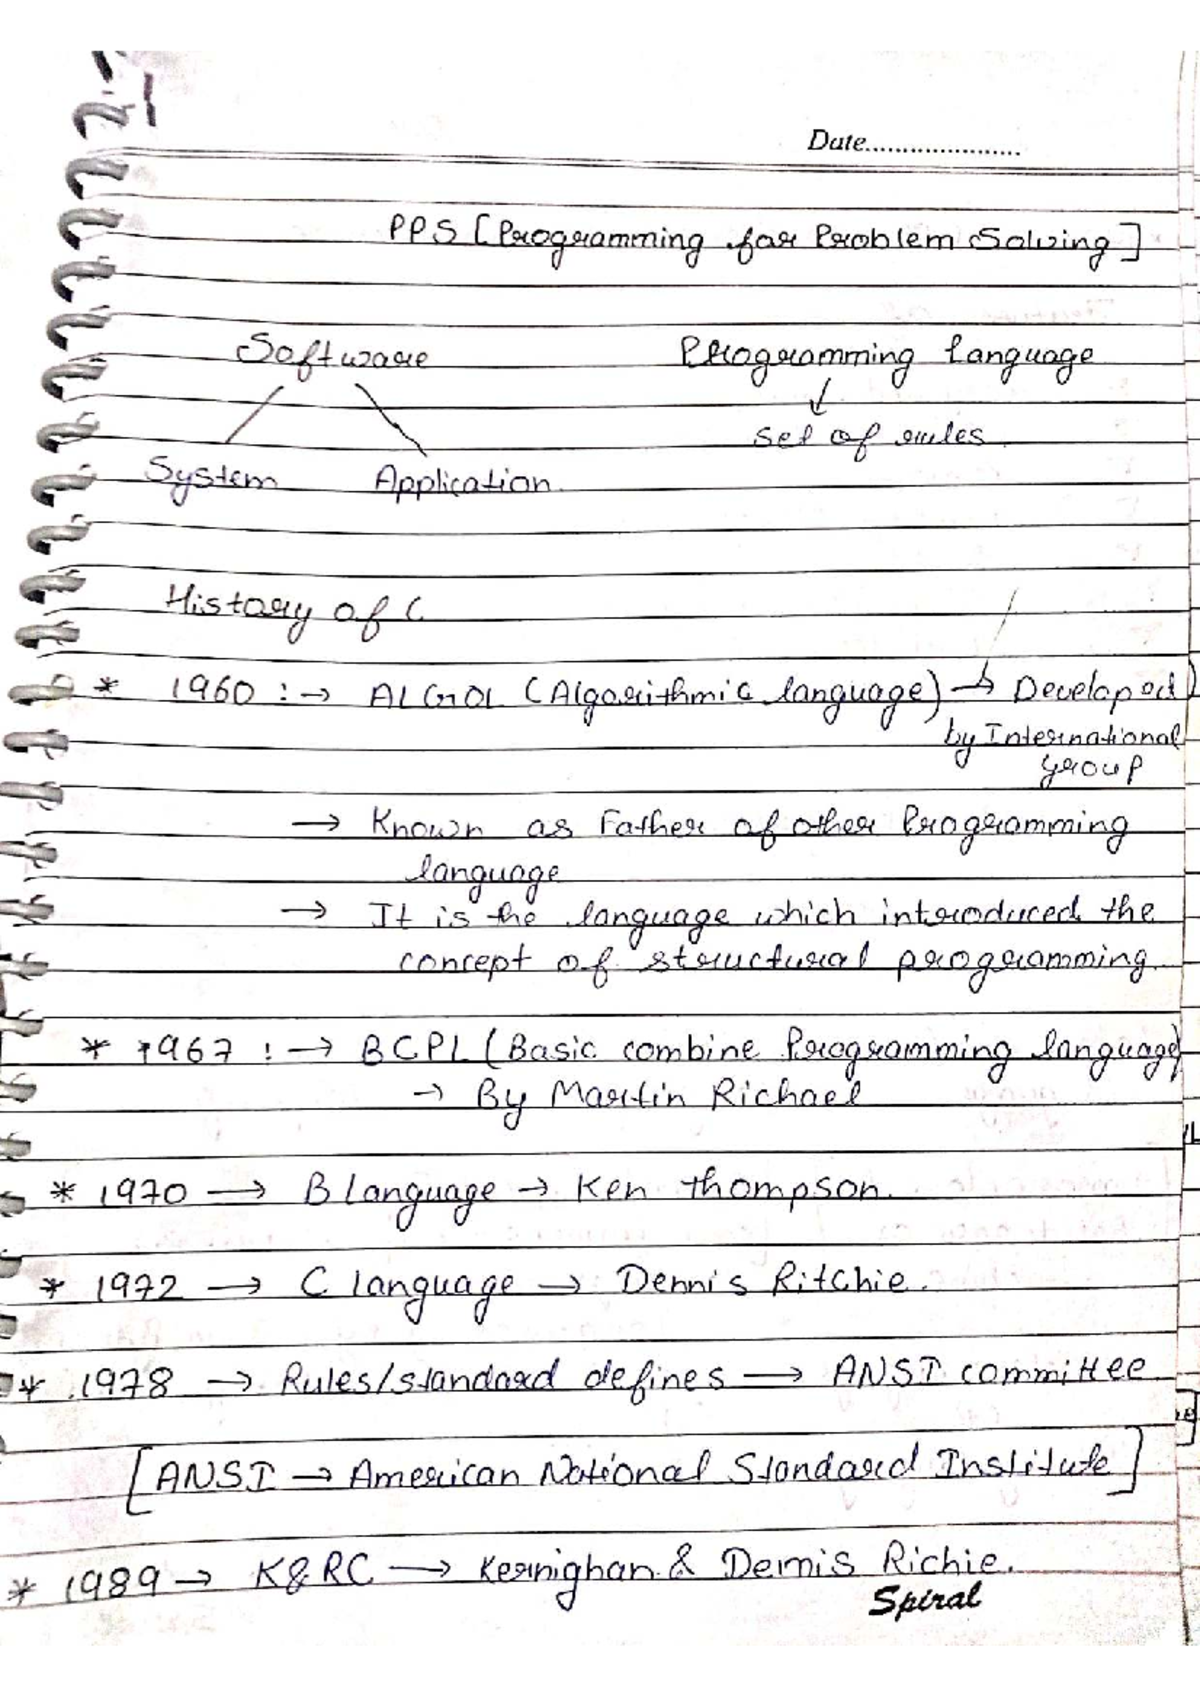 Date.....................
PPS [Programming for Problem Solving]
Software Programming language
↓
set of rules
System Application
History of C
* 1960 :→ ALGOL (Algorithmic language) → Developed
by International
group
→ Known as Father of other Programming
language
→ It is the language which introduced the
concept of structural programming
* 1967 :→ BCPL (Basic combine Programming language)
→ By Martin Richael
* 1970 → B language → Ken thompson.
* 1972 → C language → Dennis Ritchie.
* 1978 → Rules/standard defines → ANSI committee
[ANSI → American National Standard Institute]
* 1989 → K&RC → Kernighan & Dennis Richie.
Spiral